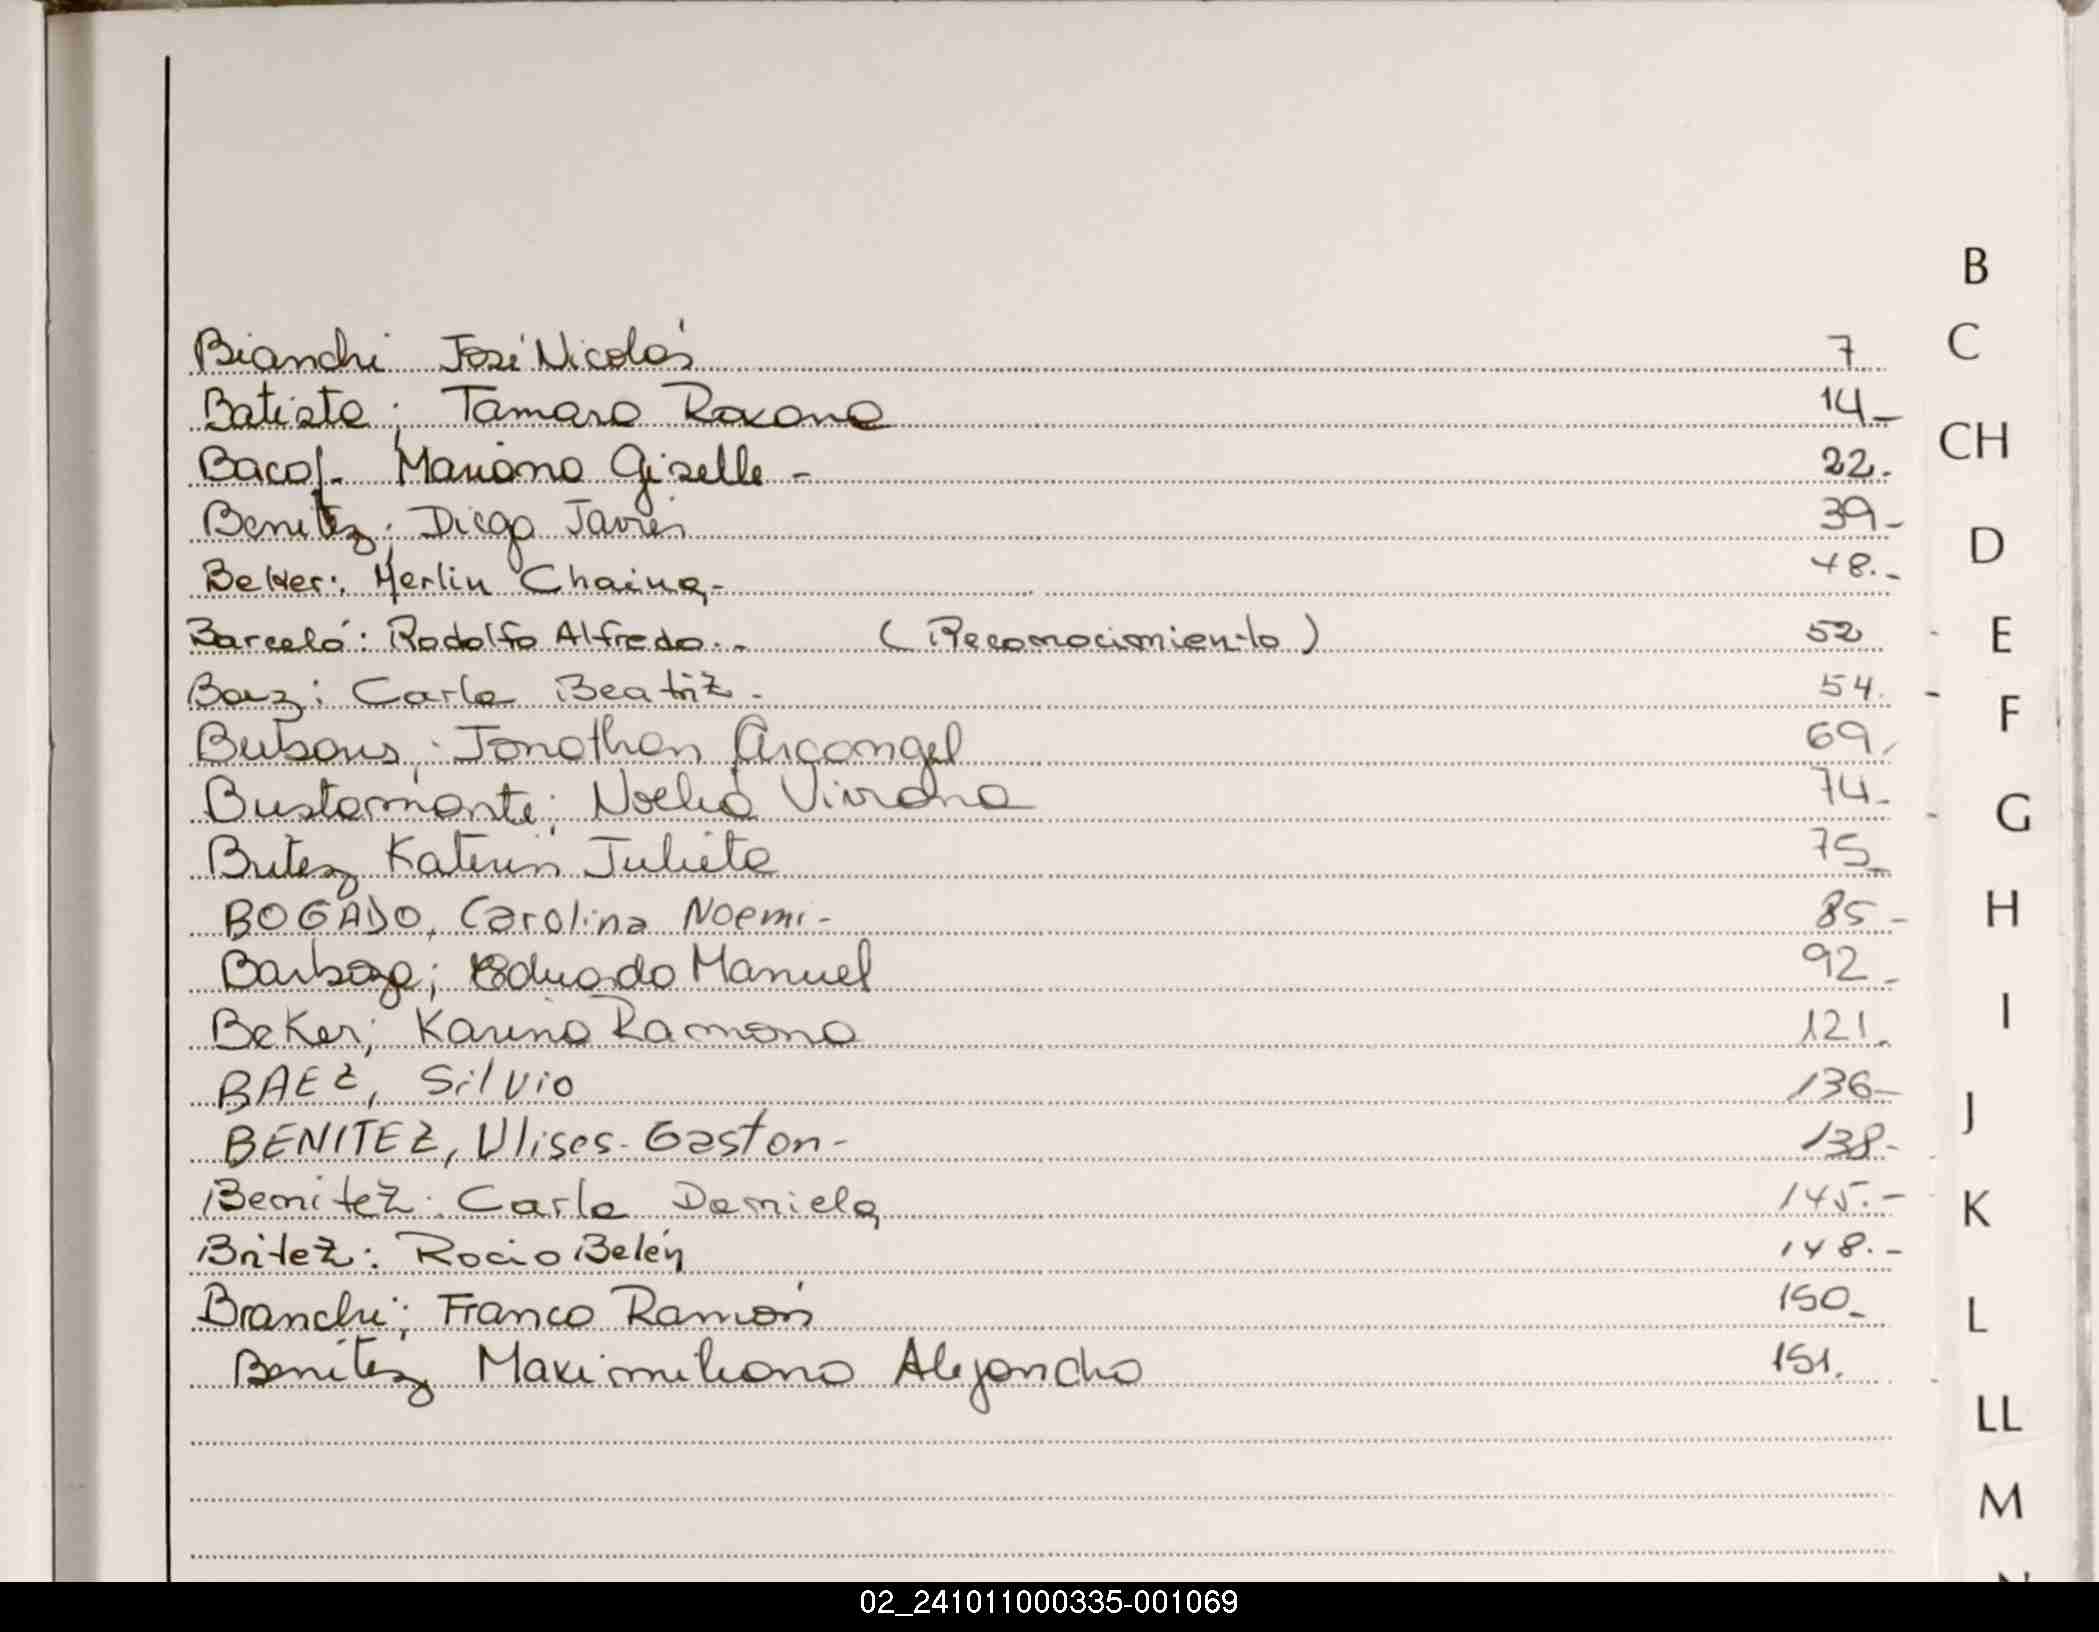 B
Bianchi José Nicolás 7
C
Batista; Tamara Roxana 14-
CH
Bacof- Mariana Giselle - 22.
Benitez; Diego Javier 39-
D
Beker: Merlin Chaina.- 48.-
Barceló: Rodolfo Alfredo.. (Reconocimiento) 52
E
Baez: Carla Beatriz - 54.
F
Jonathan Arcangel 69.
Bustamante; Noelia Viviana 74-
G
Britez Katerin Julieta 75-
BOGADO, Carolina Noemi- 85-
H
Barboza; Eduardo Manuel 92-
BeKer; Karina Ramona 121.
I
BAEZ, Silvio 136-
J
BENITEZ, Ulises Gaston- 138-
Benitez: Carla Daniela 145.-
K
Britez: Rocio Belén 148.-
Bianchi; Franco Ramón 150-
L
Benitez Maximiliano Alejandro 151.
LL
M
02_241011000335-001069